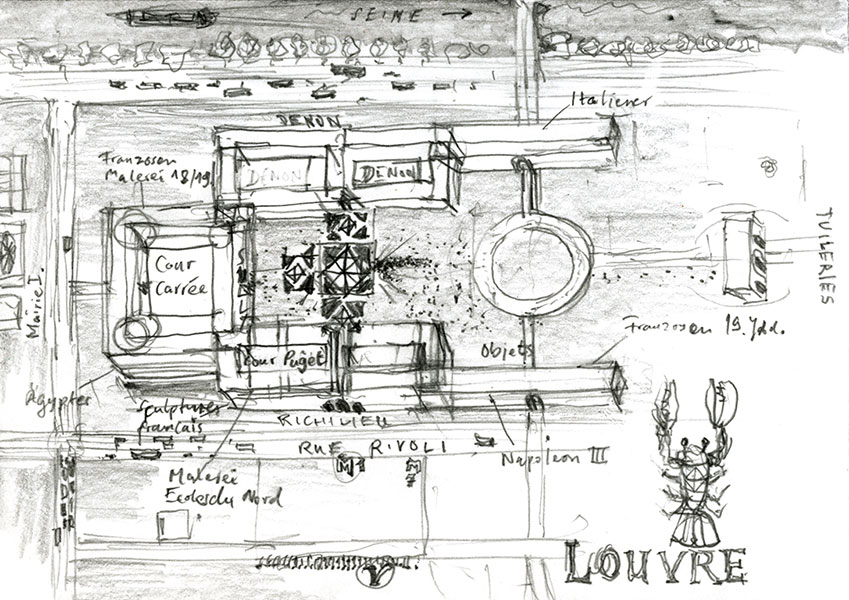 SEINE
DENON
Italiener
Franzosen
Malerei 18/19
DENON
DENON
Cour
Carrée
TUILERIES
Mairie I.
Franzosen 19. Jhd.
Cour Puget
Objets
Ägypter
Sculptures
français
RICHILIEU
RUE RIVOLI
Napoleon III
M1
M
7
Malerei
Ecoles du Nord
LOUVRE